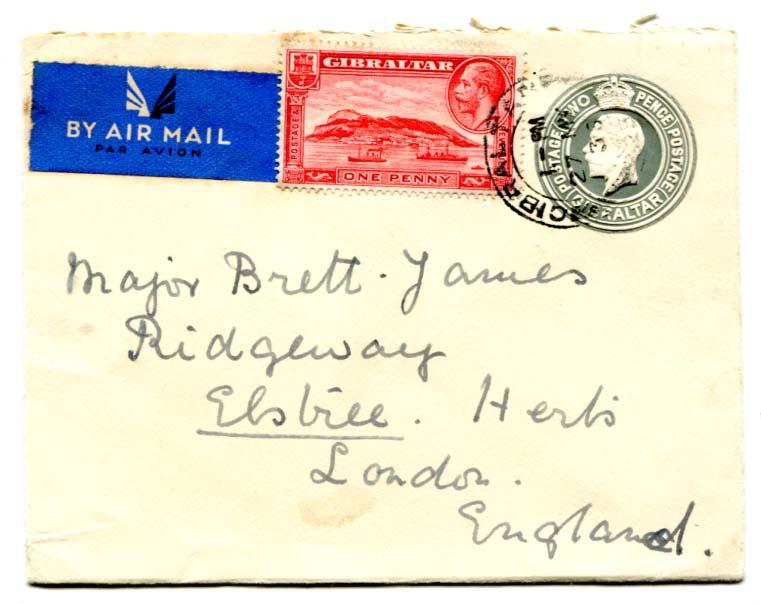 BY AIR MAIL
PAR AVION
GIBRALTAR
POSTAGE &
ONE PENNY
POSTAGE TWO PENCE POSTAGE
GIBRALTAR
GIBR
27
Major Brett-James
Ridgeway
Elsbree. Herts
London.
England.